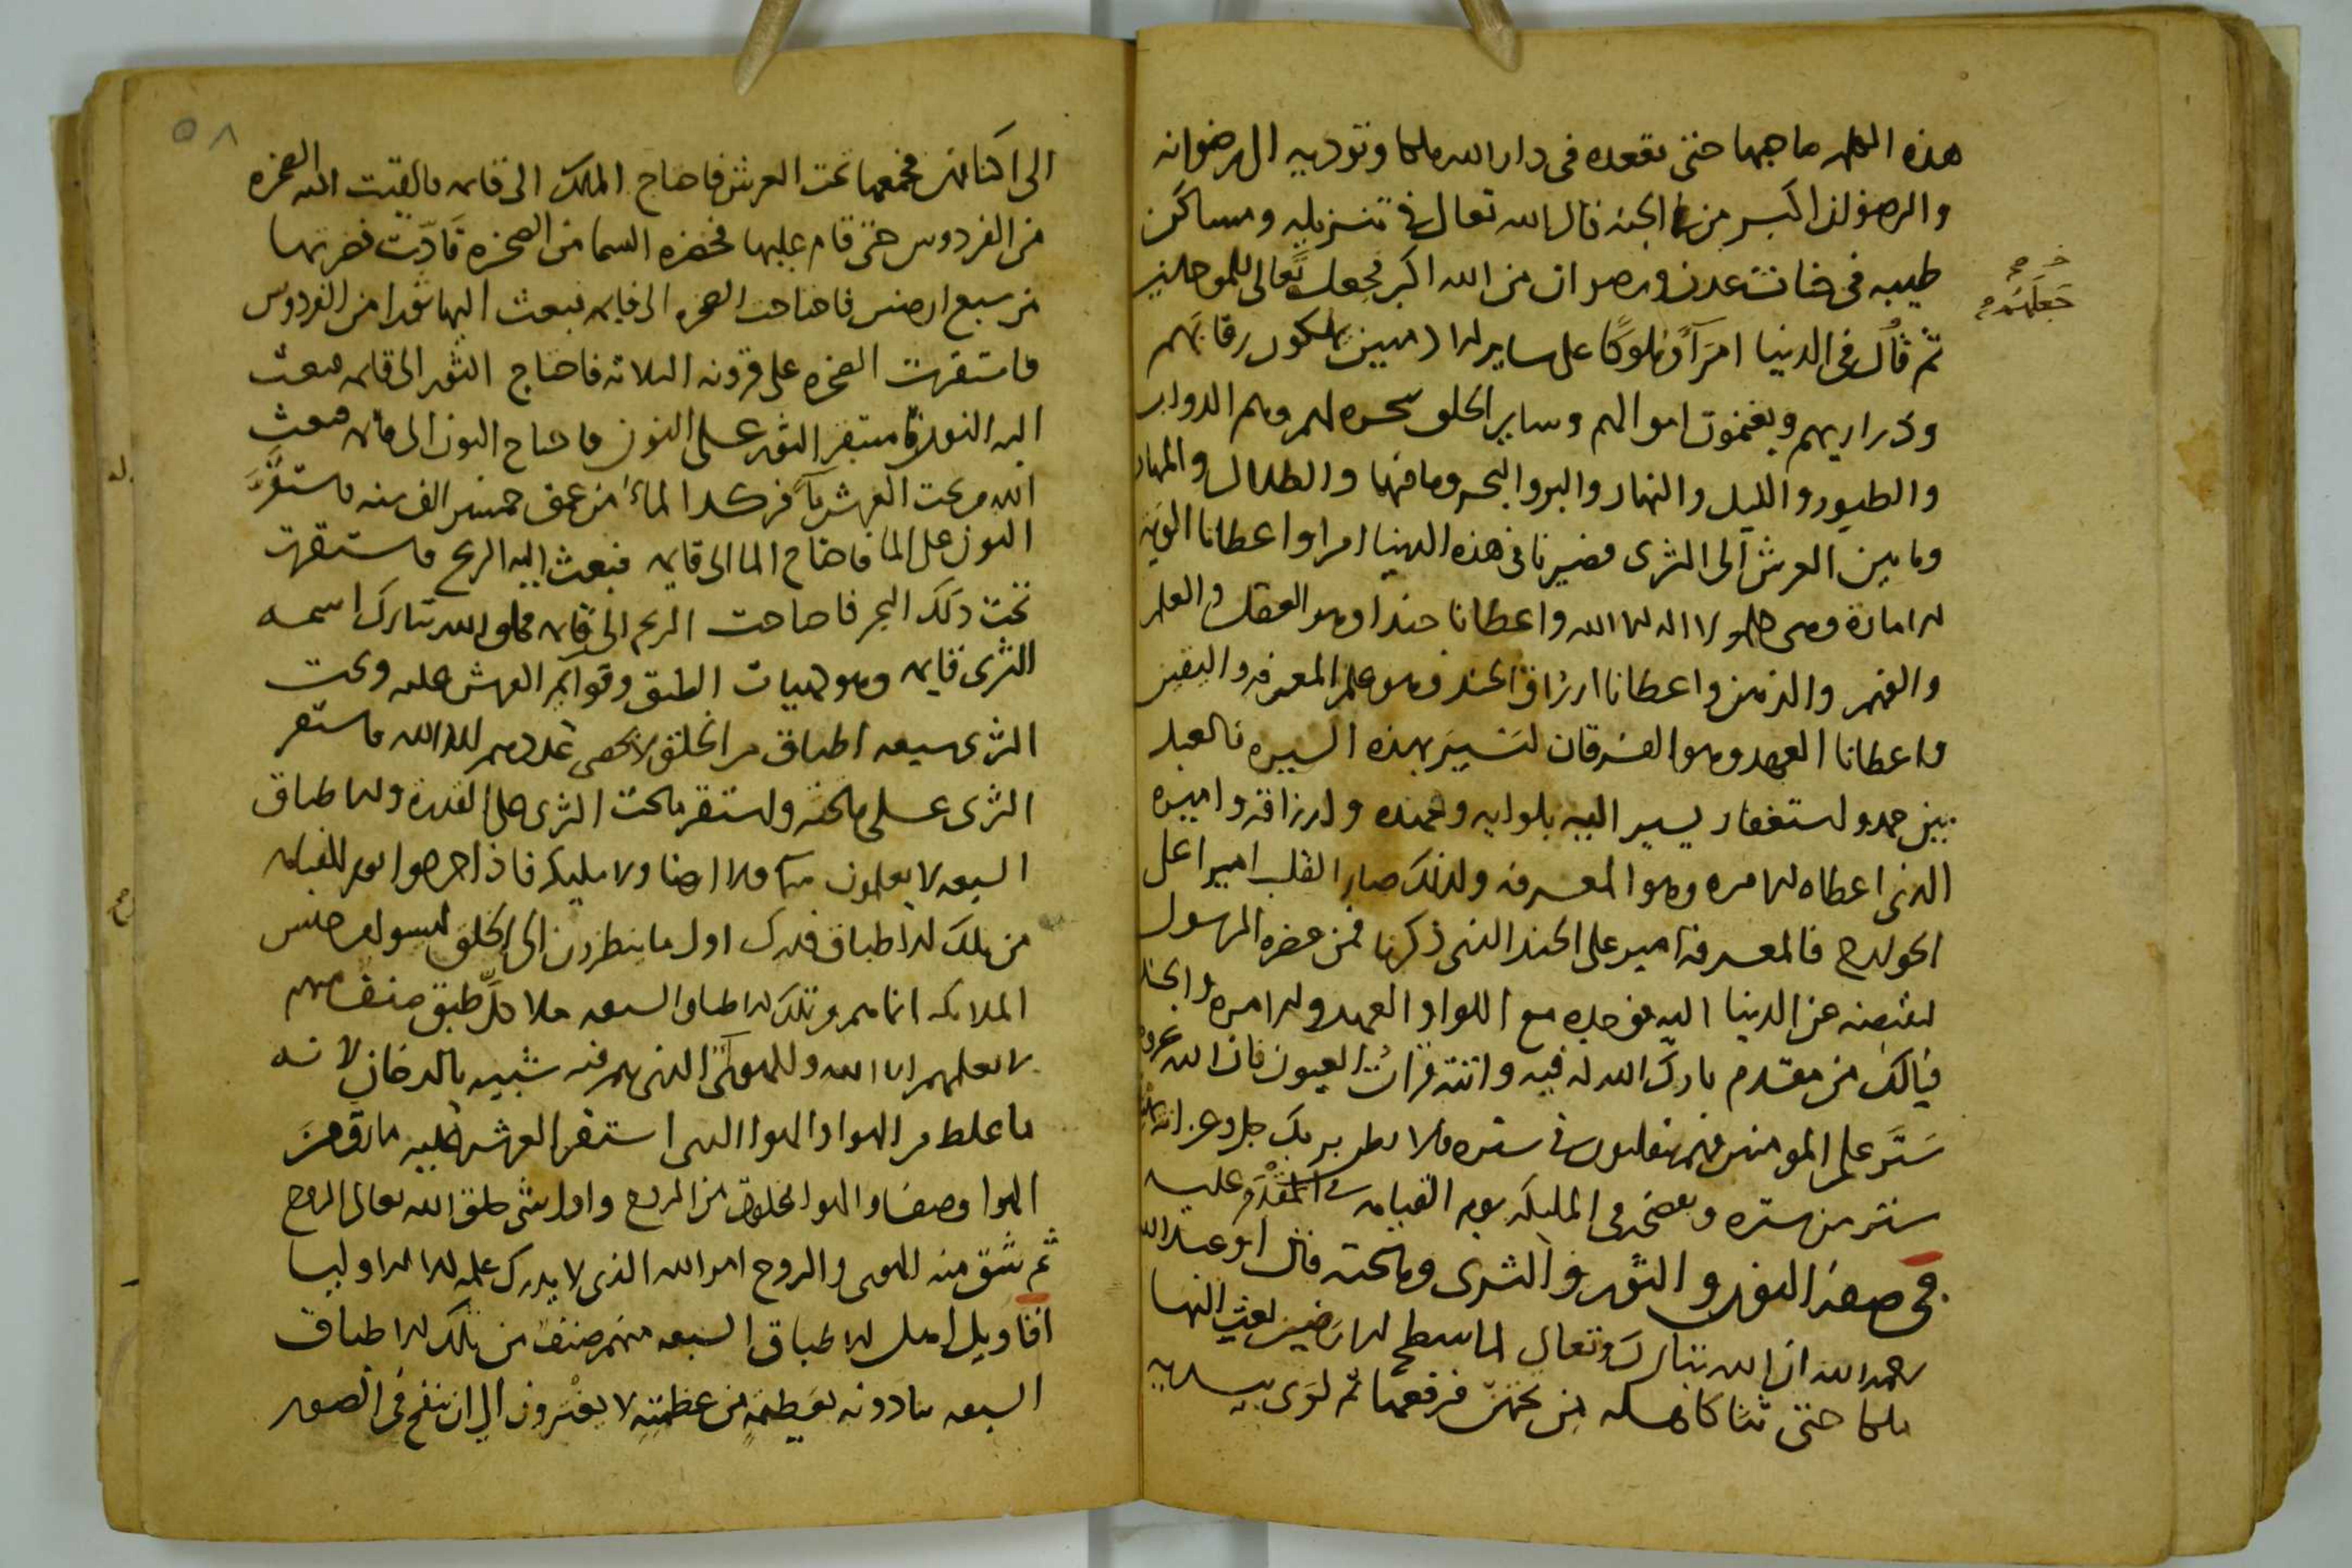 هذه الكلمه صاحبها حتى تقعده في دار الله ملكا وتوديه الى رضوانه
والرضوان اكبر من الجنه قال الله تعالى في تنزيله ومساكن
طيبه في جنات عدن ورضوان من الله اكبر فجعل تعالى للموحدين
ثم قال في الدنيا امرآ وملوكا على ساير الادميين يملكون رقابهم
وذراريهم ويغنمون اموالهم وساير الخلق سخره لهم وهم الدواب
والطيور والليل والنهار والبر والبحر وما فيها والظلال والمهاد
وما بين العرش الى الثرى فصيرنا في هذه الدنيا امرا واعطانا الوية
الامارة وهي لا اله الا الله واعطانا جندا وهو العقل والعلم
والفهم والذهن واعطانا ارزاق الجند وهو علم المعرفه واليقين
واعطانا العهد وهو الفرقان لنسير بهذه السيره فالعبد
بين حمد واستغفار يسير اليه بلوايه وجنده وارزاقه واميره
الذى اعطاه الامره وهو المعرفه ولذلك صار القلب اميرا على
الجوارح فالمعرفه امير على الجند الذى ذكرنا فمن حضره الرسول
ليقبضه عن الدنيا اليه فوجده مع اللوا والعهد والامره والجند
فيالك من مقدم بارك الله له فيه واتته قرات العيون فان الله عز وجل
ستر على المومنين فهم يتقلبون في ستره
ستر من ستره في المليكه يوم القيامه
في صفه النون والثور والثرى وما تحته قال ابو عبد الله
رحمه الله ان الله تبارك وتعالى لما سطح الارضين بعث اليها
ملكا حتى من تحتهن فرفعها ثم لوى بيديه
جعلهم
٥٨
الى اكتافه فجمعها تحت العرش فاحتاج الملك الى قايمه فالقيت اليه الصخره
من الفردوس حتى قام عليها فخضره السما من الصخره تادّت خضرتها
من سبع ارضين فاحتاجت الصخره الى قايمه فبعث اليها ثورا من الفردوس
فاستقرت الصخره على قرونه الثلاثه فاحتاج الثور الى قايمه فبعث
اليه النون فاستقر الثور على النون فاحتاج النون الى قايمه فبعث
اليه من تحت العرش مآ فركد الماء من عمق خمسين الف سنه فاستقر
النون على الما فاحتاج الما الى قايمه فبعث اليه الريح فاستقرت
تحت ذلك البحر فاحتاجت الريح الى قايمه فخلق الله تبارك اسمه
الثرى قايمه وهو الطبق وقوايم العرش عليه وتحت
الثرى سبعه اطباق من الخلق لا يحصى عددهم الا الله فاستقر
الثرى على ما تحته واستقر ما تحت الثرى على القدره واهل اطباق
السبعه لا يعلمون سمآ ولا ارضا ولا مليكه فاذا اخرجوا يوم القيامه
من تلك الاطباق فذلك اول ما ينظرون الى الخلق ليسوا من جنس
الملائكه انما هم من تلك الاطباق السبعه ملا كل طبق صنف منهم
لا يعلمهم الا الله والهوى الذى هم فيه شبيه بالدخان لانه
ما غلظ من الهوا والهوا الذى استقر العرش عليه ما رق من
الهوا وصفا والهوا مخلوق من الروح واول شى خلق الله تعالى الروح
ثم شق منه الهوى والروح امر الله الذى لا يدرك علمه الا الاوليا
اقاويل اهل الاطباق السبعه منهم صنف من تلك الاطباق
السبعه ينادونه بعظمة من عظمته لا يفترون الى ان ينفخ في الصور